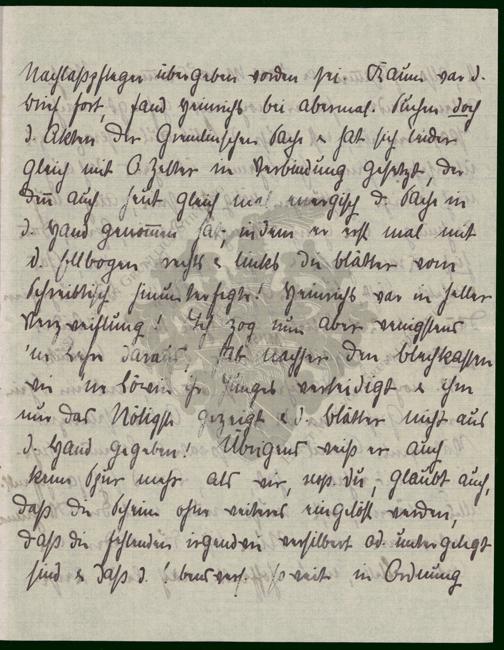 Nachlaßpfleger übergeben worden sei. Kaum war d.
Brief fort, fand Heinrichs bei abermal. Suchen doch
d. Akten der Sache & hat sich leider
gleich mit O. Zelter in Verbindung gesetzt, der
dann auch heut gleich mal energisch d. Sache in
d. Hand genommen hat, indem er erst mal mit
d. Ellbogen rechts & links die Blätter vom
Schreibtisch hinunterfegte! Heinrichs war in heller
Verzweiflung! Ich zog mir aber wenigstens
'ne Lehre daraus & hab nachher den Blechkasten
wie 'ne Löwin ihr Junges verteidigt & ihm
nur das Nötigste gezeigt & d. Blätter nicht aus
d. Hand gegeben! Übrigens weiß er auch
keine Spur mehr als wir, resp. du, glaubt auch,
daß die Scheine ohne weiteres eingelöst werden,
daß die fehlenden irgendwie versilbert od. untergelegt
sind & daß d. Lebensvers. soweit in Ordnung